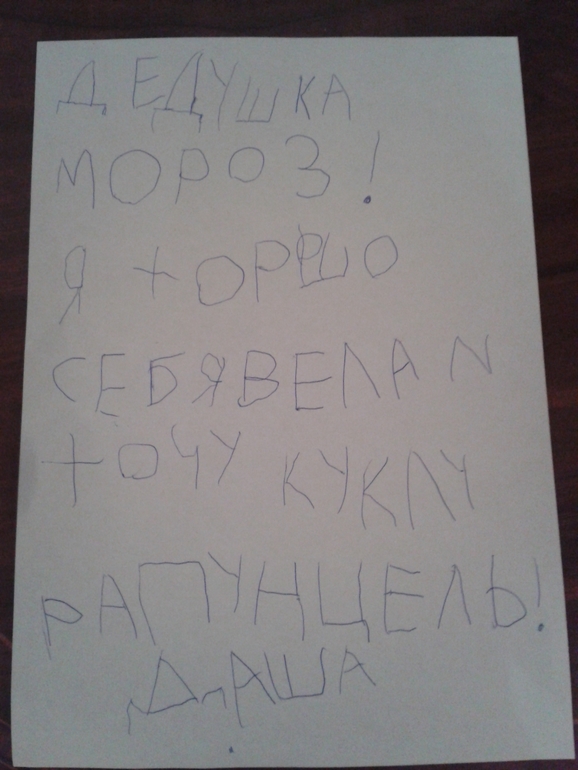 ДЕДУШКА
МОРОЗ!
Я ХОРРШО
СЕБЯВЕЛА И
ХОЧУ КУКЛУ
РАПУНЦЕЛЬ!
ДАША